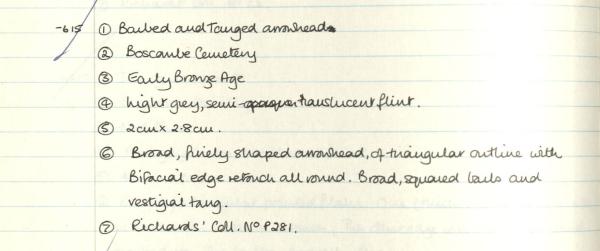 -615 ① Barbed and Tanged arrowhead
② Boscombe Cemetery
③ Early Bronze Age
④ Light grey, semi-translucent flint.
⑤ 2cm x 2.8cm.
⑥ Broad, finely shaped arrowhead, of triangular outline with
Bifacial edge retouch all round. Broad, squared barbs and
vestigial tang.
⑦ Richards' Coll. Nº P281.